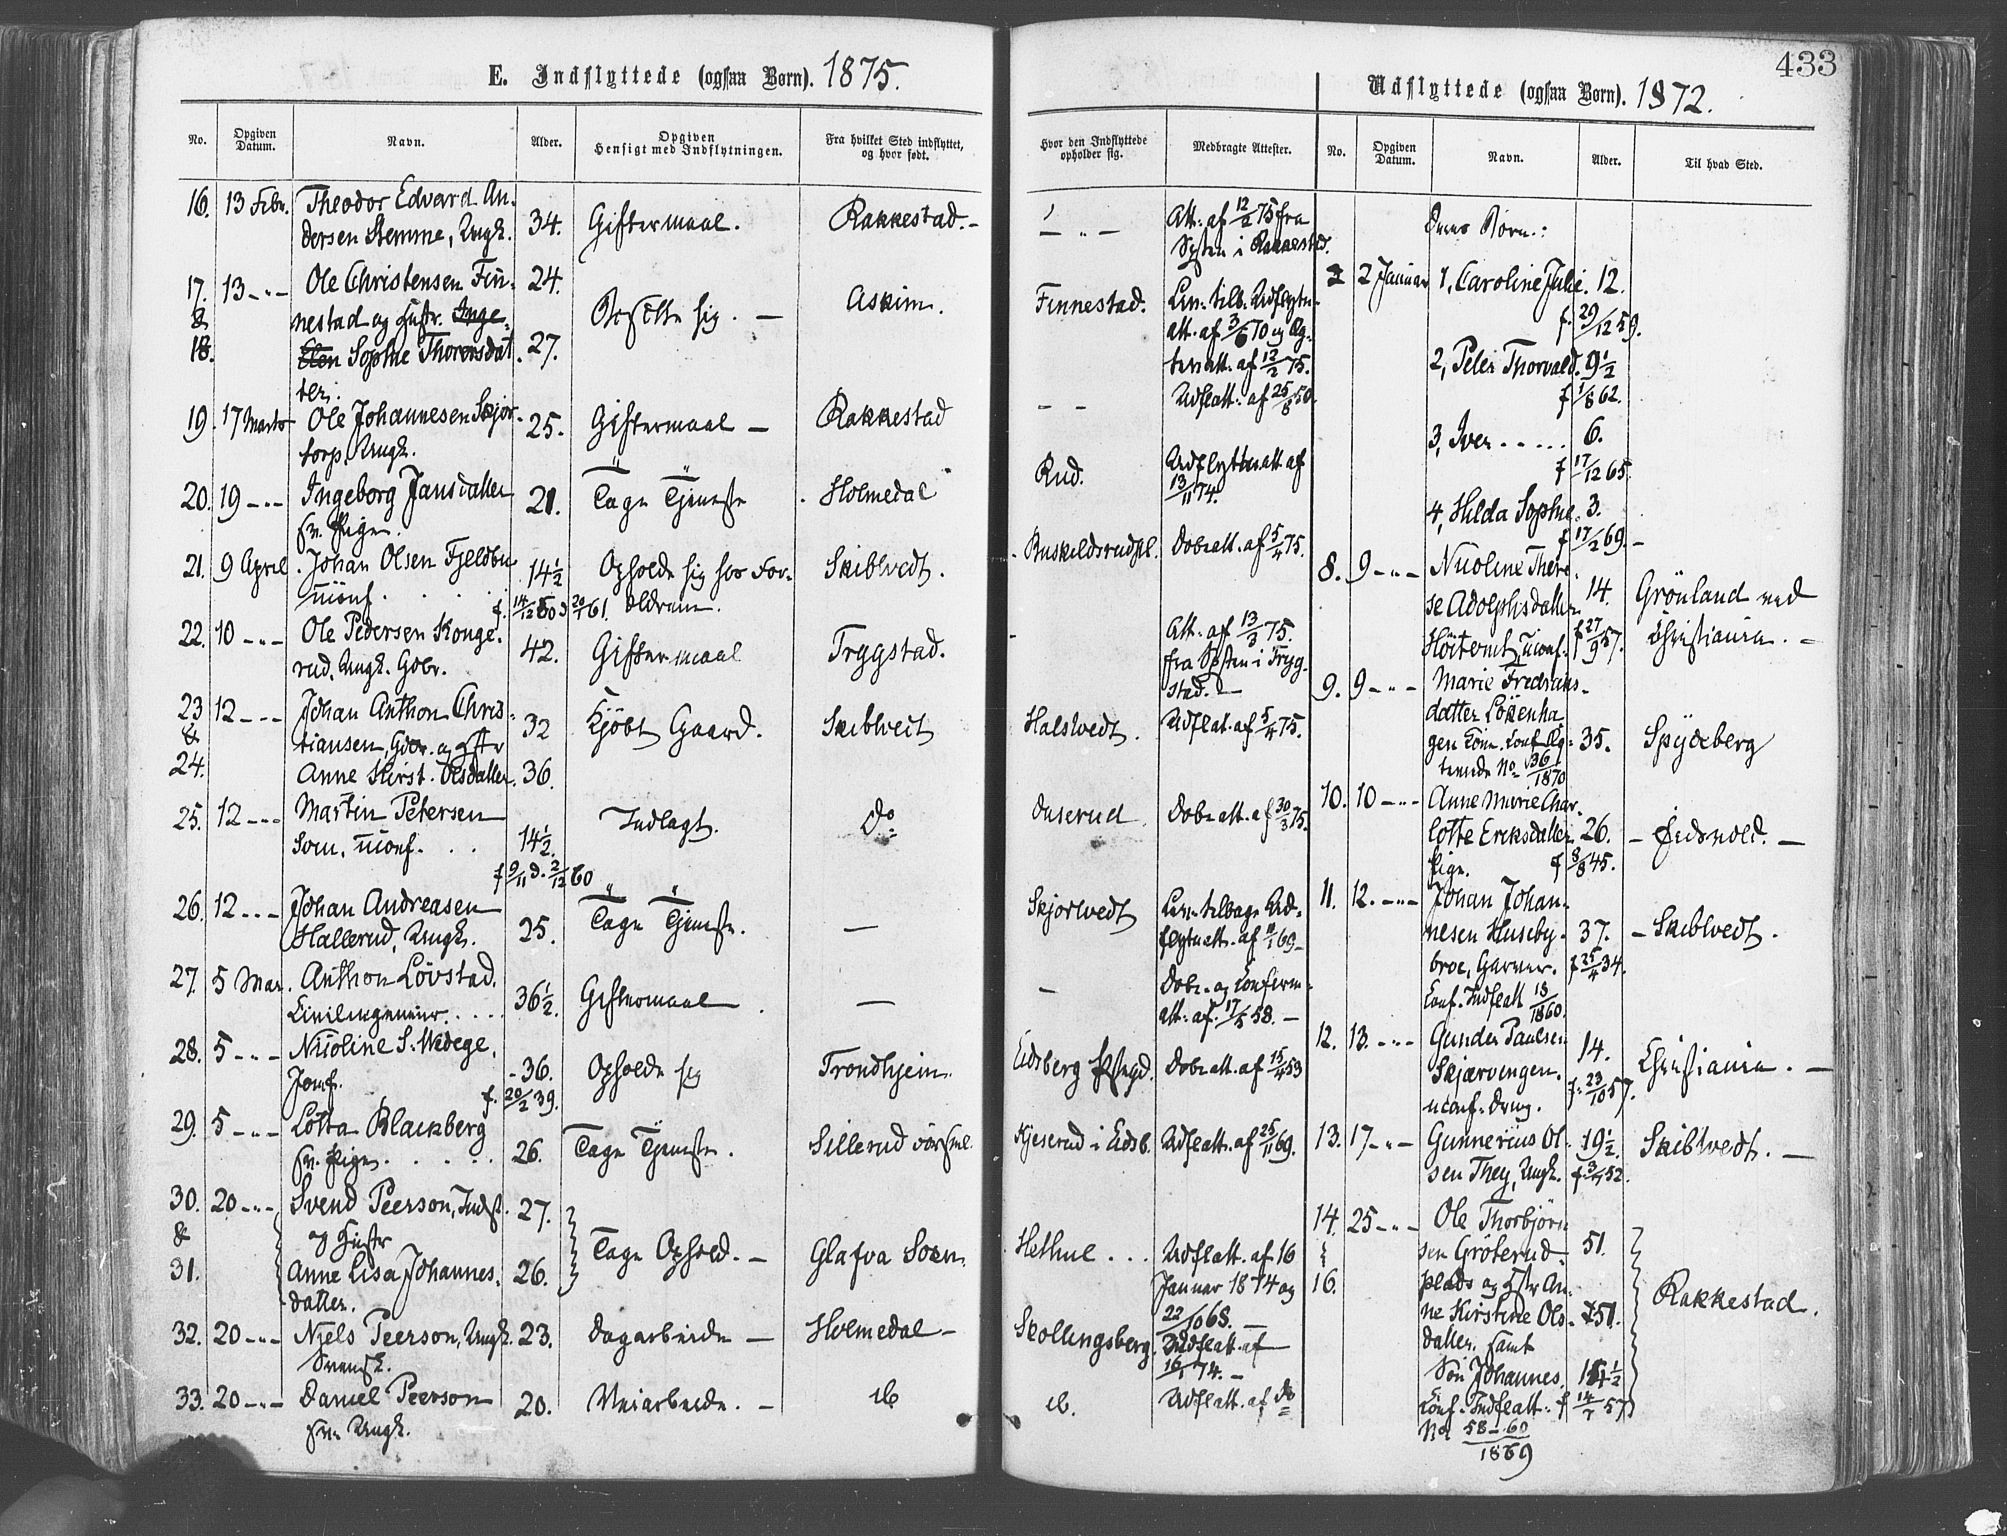 433
E. Indflyttede (ogsaa Børn). 1875.
No. Opgiven Datum. Navn. Alder. Opgiven Hensigt med Indflytningen. Fra hvilket Sted indflyttet, og hvor født. Hvor den Indflyttede opholder sig. Medbragte Attester.
16. 13 Febr. Theodor Edvard An- 34. Giftermaal. Rakkestad. Att: af 12/2 75 fra
dersen Stemme, Ungk. i Rakkestad.
17. 13 Ole Christensen Fin- 24. Askim. Finnestad.
& nestad og Hustr. Inge- Bosætte sig. att. af 3/6 70 og Æg-
18. Elen Sophie Thorersdat 27. att. af 12/2 75.
ter.
19. 17 Marts Ole Johannesen Skjor- 25. Giftermaal Rakkestad Udflatt. af 25/8 50.
torp, Ungk.
20. 19 Ingeborg Jansdatter 21. Tage Tjeneste Holmedal Rud. Udflytn. att. af
sv. Pige. 13/11 74.
21. 9 April Johan Olsen Fjeldbu 14½ Opholde sig hos For- Skiblvedt. Døbeatt. af 5/4 75.
uconf. f. 14/12 60 d 20/1 61. ældrene.
22. 10 Ole Pedersen Konge- 42. Giftermaal Trygstad. Att. af 13/3 75.
rud, Ungk. Gbr. fra i Tryg-
stad.
23 12 Johan Anthon Chris- 32 Kjøbt Gaard. Skiblvedt Halslvedt. Udflat. af 5/4 75.
& tiansen, Gbr. og Hstr
24. Anne Kirst. Olsdatter 36.
25. 12 Martin Petersen Indlagt. Do Duserud Døbeatt. af 30/3 75.
Som, uconf. 14½.
f 9/11 d. 2/12 60
26. 12 Johan Andreasen 25. Tage Tjeneste. Skjorlvedt tilbage Ud-
Hallerud, Ungk. flytn att. af 69
27. 5 Mai. Anthon Lövstad. 36½. Giftermaal Døbe- og Conferm-
Civilingeniør. att. af 17/5 58.
28. 5 Nicoline S. Wedege, -36. Opholde sig Trondhjem. Eidsberg Døbeatt. af 15/4 53
Jomf. f. 20/2 39.
29. 5 Lotta Blackberg 26. Tage Tjeneste. Sillerud Kjeserud i Eidsb. Udflatt. af 25/11 69.
sv. Pige.
30. 20 Svend Peerson, Indst. 27. Tage Ophold. Glafva Sokn Hethue Udflatt. af 16
& og Hustr Januar 1874 og
31. Anne Lisa Johannes- 26. 22/10 68.
datter.
32. 20 Niels Peerson, Ungk. 23. Dagarbeide Holmedal Skollingsberg. Indflatt. af
Svensk. 16/1 74.
33. 20 Daniel Peerson 20. Veiarbeide. ib ib. Udflatt. af do
sv. Ungk.
Udflyttede (ogsaa Børn). 1872.
No. Opgiven Datum. Navn. Alder. Til hvad Sted.
Børn:
2 Januar 1, Caroline Julie. 12.
f. 29/12 59.
2, Peter Thorvald. 9½
f 1/8 62.
3, Iver 6.
f 17/12 65.
4, Hilda Sophie. 3.
f 17/2 69.
8. 9 Nicoline There- 14. Grönland ved
se Adolphsdatter Christiania.
uconf. f 27/9 57.
9. 9 Marie Fredriks-
datter Lökenha
gen 35. Spydeberg
No 36/1870
10. 10 Anne Marie Char-
lotte Eriksdatter 26. Eidsvold.
Pige. f 8/8 45.
11. 12. Johan Johan-
nesen Huseby- 37. Skiblvedt.
broe, Garver. f 25/4 34.
Conf. Indflatt 18/1860.
12. 13. Gunder Paulsen 14. Christiania.
Skjærvingen. f. 23/10 57.
uconf. Dreng.
13. 17 Gunnerius Ol- 19½. Skiblvedt.
sen They, Ungk. f 52.
14. 25 Ole Thorbjörn
sen Gröterud- 51.
16. plads og Hstr An- Rakkestad.
ne Kirstine Ols- 51.
datter, samt
Sön Johannes, 14½
Conf. Indflatt. f 57
No 58-60
1869